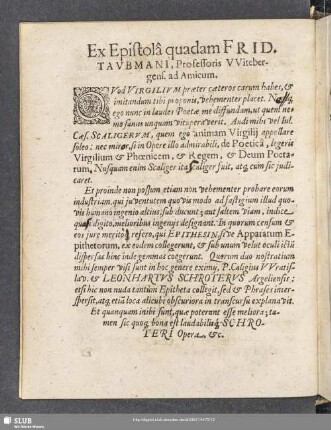 Ex Epistolâ quadam FRID.
TAVBMANI, Professoris VVitebergens. ad Amicum.
QVod VIRGILIVM præter cæteros carum habes, &
imitandum tibi proponis, vehementer placet. Neq́;
ego nunc in laudes Poetæ me diffundam, ut quem nemo
sanus unquam vituperaverit. Audi mihi vel Iul.
Cæs. SCALIGERVM, quem ego animam Virgilij appellare
soleo: nec miror, si in Opere illo admirabili, de Poeticâ, legeris
Virgilium & Phœnicem, & Regem, & Deum Poetarum,
Nusquam enim Scaliger ita Scaliger fuit, atq; cum sic judicaret.
Et proinde non possum etiam non vehementer probare eorum
industriam, qui juventutem quovis modo ad fastigium illud quovis
humano ingenio altius, sub ducunt; aut saltem viam, indice
quasi digito, melioribus ingenijs designant. In quorum censum &
eos jure meritò refero, qui EPITHESIN, sive Apparatum Epithetorum,
ex eodem collegerunt, & sub unum velut oculi ictũ
dispersas hinc inde gemmas coegerunt. Quorum duo nostratium
mihi semper visi sunt in hoc genere eximij, P. Calagius VVratislav.
& LEONHARTVS SCHROTERVS Argeliensis:
etsi hic non nuda tantùm Epitheta collegit, sed & Phrases interspersit,
atq; etiã loca alicubi obscuriora in transcursu explanavit.
Et quanquam inibi sunt, quæ poterant esse meliora; tamen
sic quoq; bona est laudabilisq́; SCHROTERI
Opera. &c.
SLUB